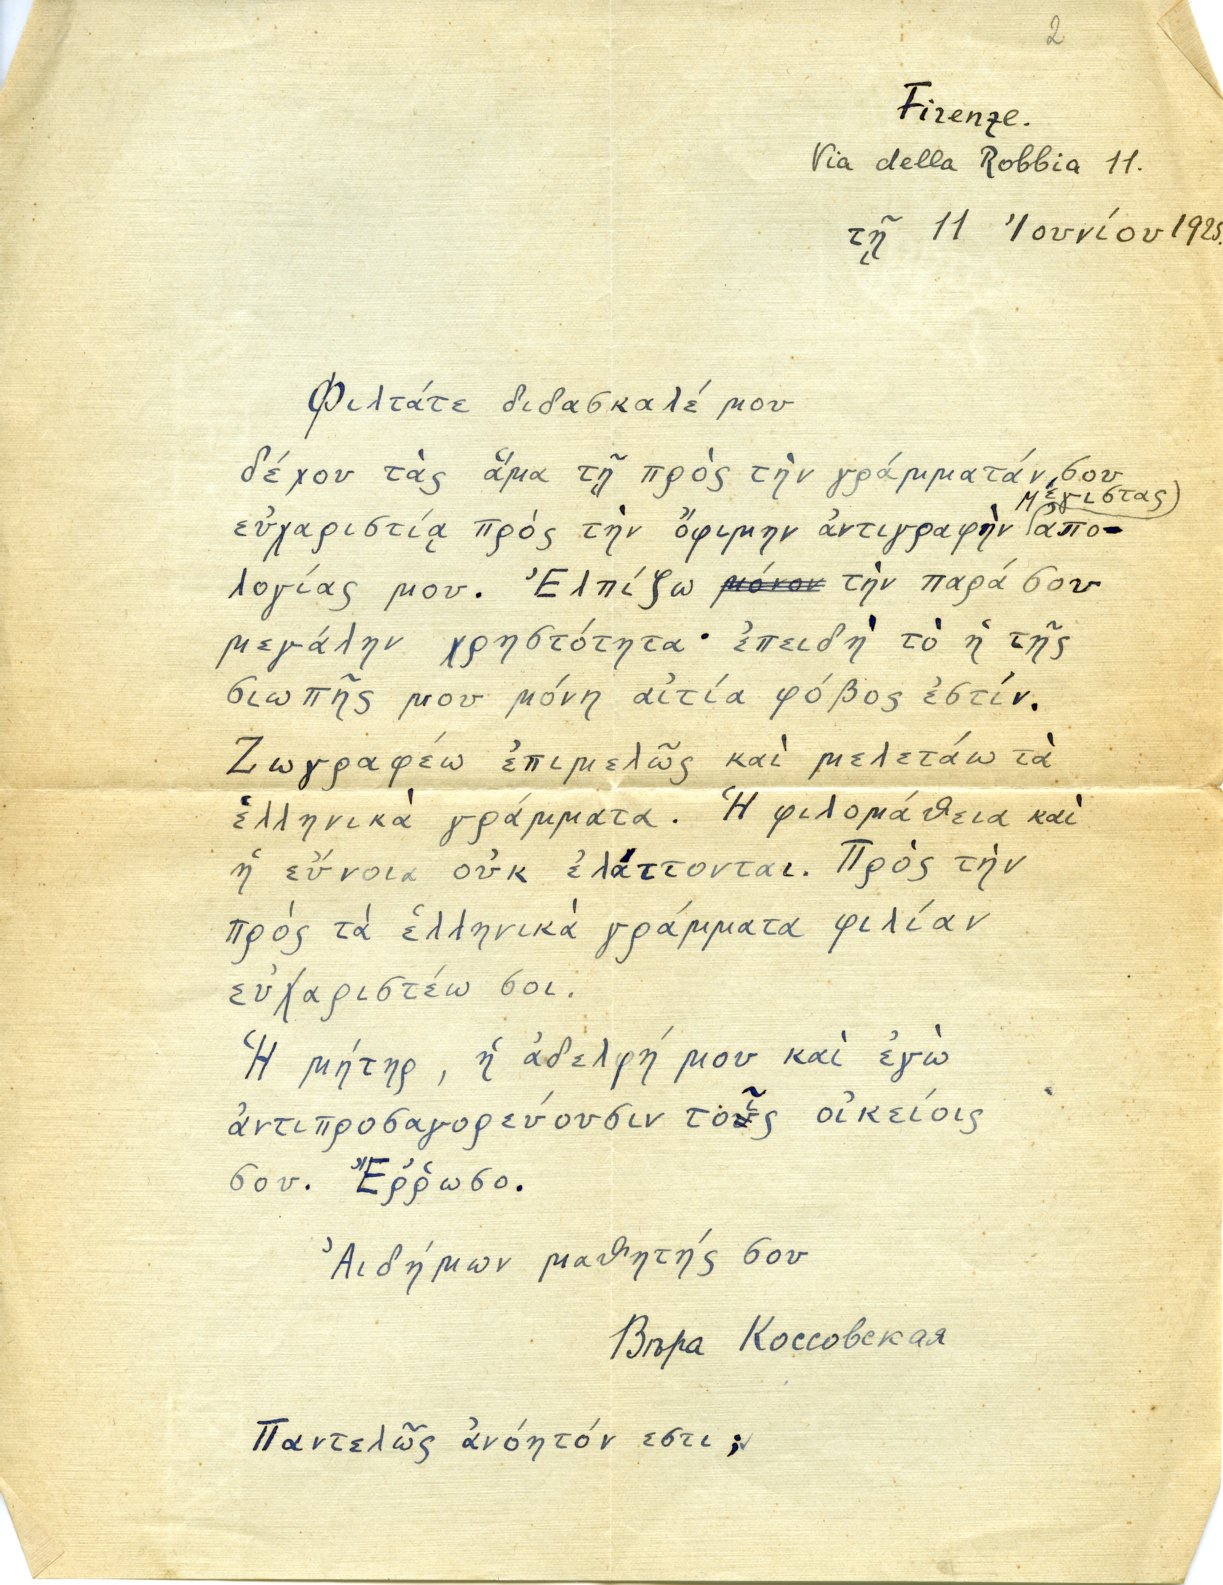 2
Firenze.
Via della Robbia 11.
τῇ 11 Ἰουνίου 1925.
Φιλτάτε διδασκαλέ μου
δέχου τὰς ἅμα τῇ πρὸς τὴν γράμματάν σου
μέγιστας
εὐχαριστίᾳ πρὸς τὴν ὄψιμην ἀντιγραφὴν ἀπο-
λογίας μου. Ἐλπίζω μόνον τὴν παρά σου
μεγάλην χρηστότητα· ἐπειδὴ τὸ ἡ τῆς
σιωπῆς μου μόνη αἰτία φόβος ἐστίν.
Ζωγραφέω ἐπιμελῶς καὶ μελετάω τὰ
ἑλληνικὰ γράμματα. Ἡ φιλομάθεια καὶ
ἡ εὔνοια οὐκ ἐλάττονται. Πρὸς τὴν
πρὸς τὰ ἑλληνικὰ γράμματα φιλίαν
εὐχαριστέω σοι.
Ἡ μήτηρ, ἡ ἀδελφή μου καὶ ἐγὼ
ἀντιπροσαγορεύουσιν τοῖς οἰκείοις
σου. Ἔῤῥωσο.
Ἀιδήμων μαθητής σου
Вѣра Коссовская
Παντελῶς ἀνόητόν εστι;